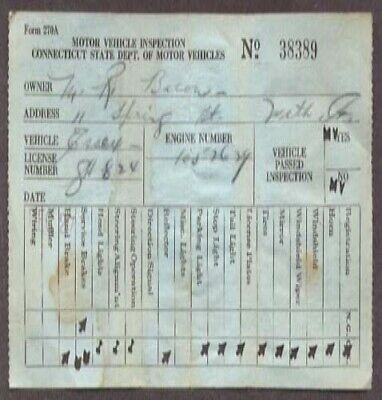 Form 270A
MOTOR VEHICLE INSPECTION
CONNECTICUT STATE DEPT. OF MOTOR VEHICLES
No 38389
OWNER M. R. Bacon
ADDRESS 11 Spring St.
VEHICLE Essex
ENGINE NUMBER
LICENSE NUMBER
VEHICLE PASSED INSPECTION
YES
NO
MV
MV
DATE
Wiring
Muffler
Hand Brake
Service Brakes
Head Lights
Steering Alignm'nt
Steering Operation
Direction Signal
Reflector
Misc. Lights
Parking Light
Stop Light
Tail Light
License Plates
Tires
Mirror
Windshield Wiper
Windshield
Horn
Registration
N.G.